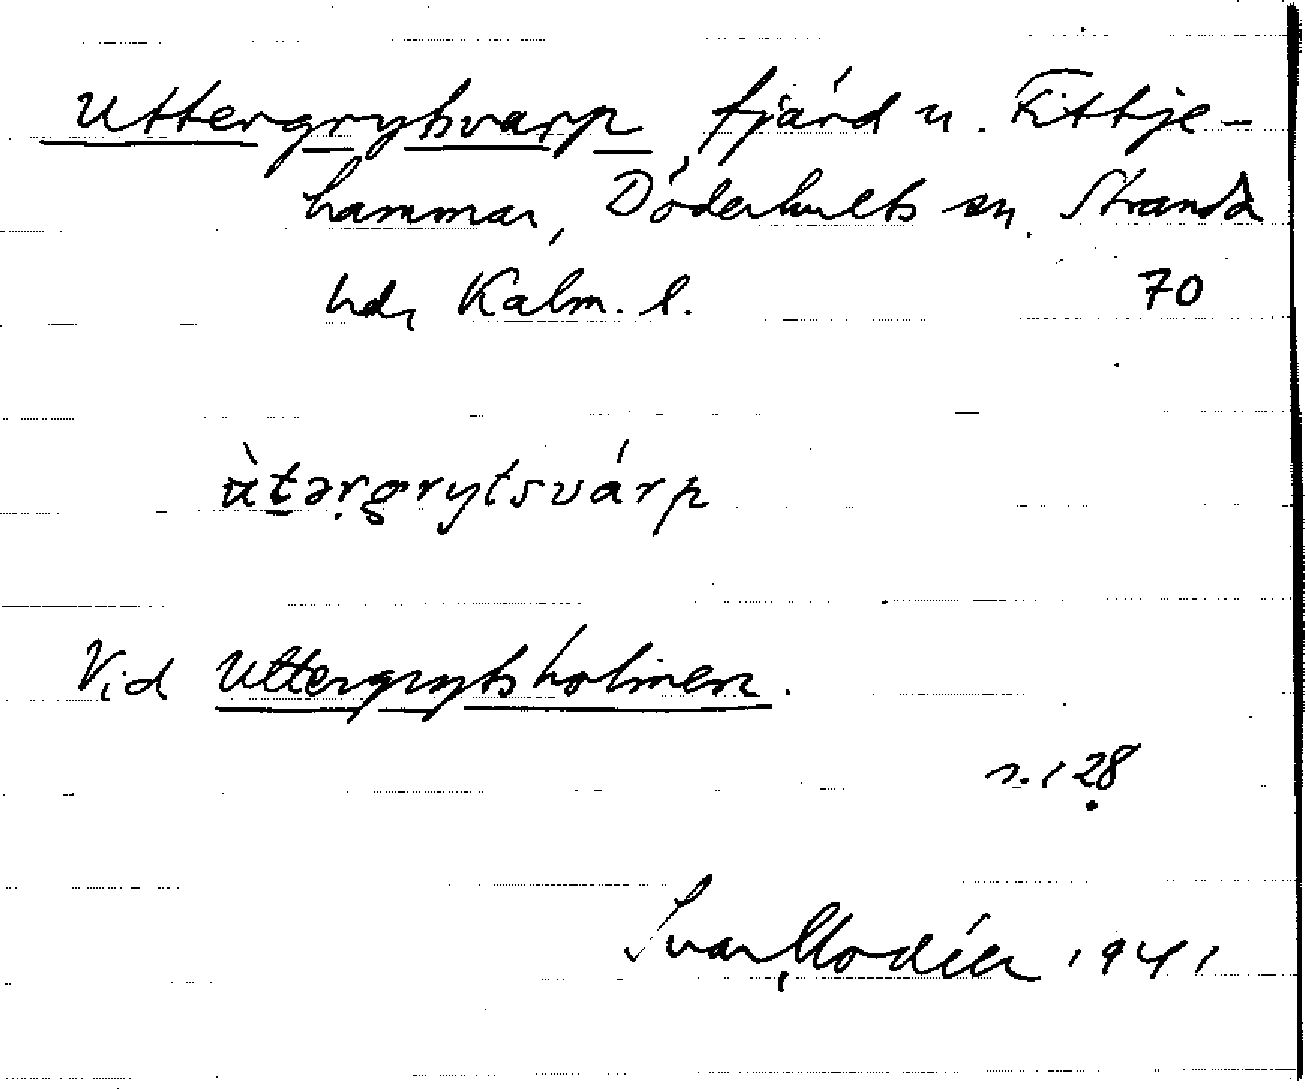 Uttergrytsvarp fjärd u. Fittje-
hammar, Döderhults sn. Stranda
hd, Kalm. l. 70
ùtərgrytsvárp
Vid Uttergrytsholmen.
s. 128
Ivar Modéer 1941